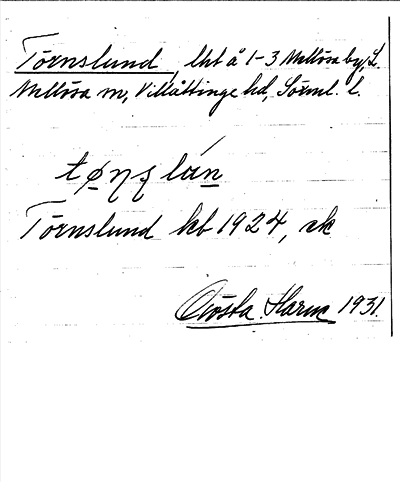 Törnslund, lht å 1-3 Mellösa by, L.
Mellösa sn, Villåttinge hd, Sörml. l.
Törnslund kb 1924, ek
Gösta Harm 1931.